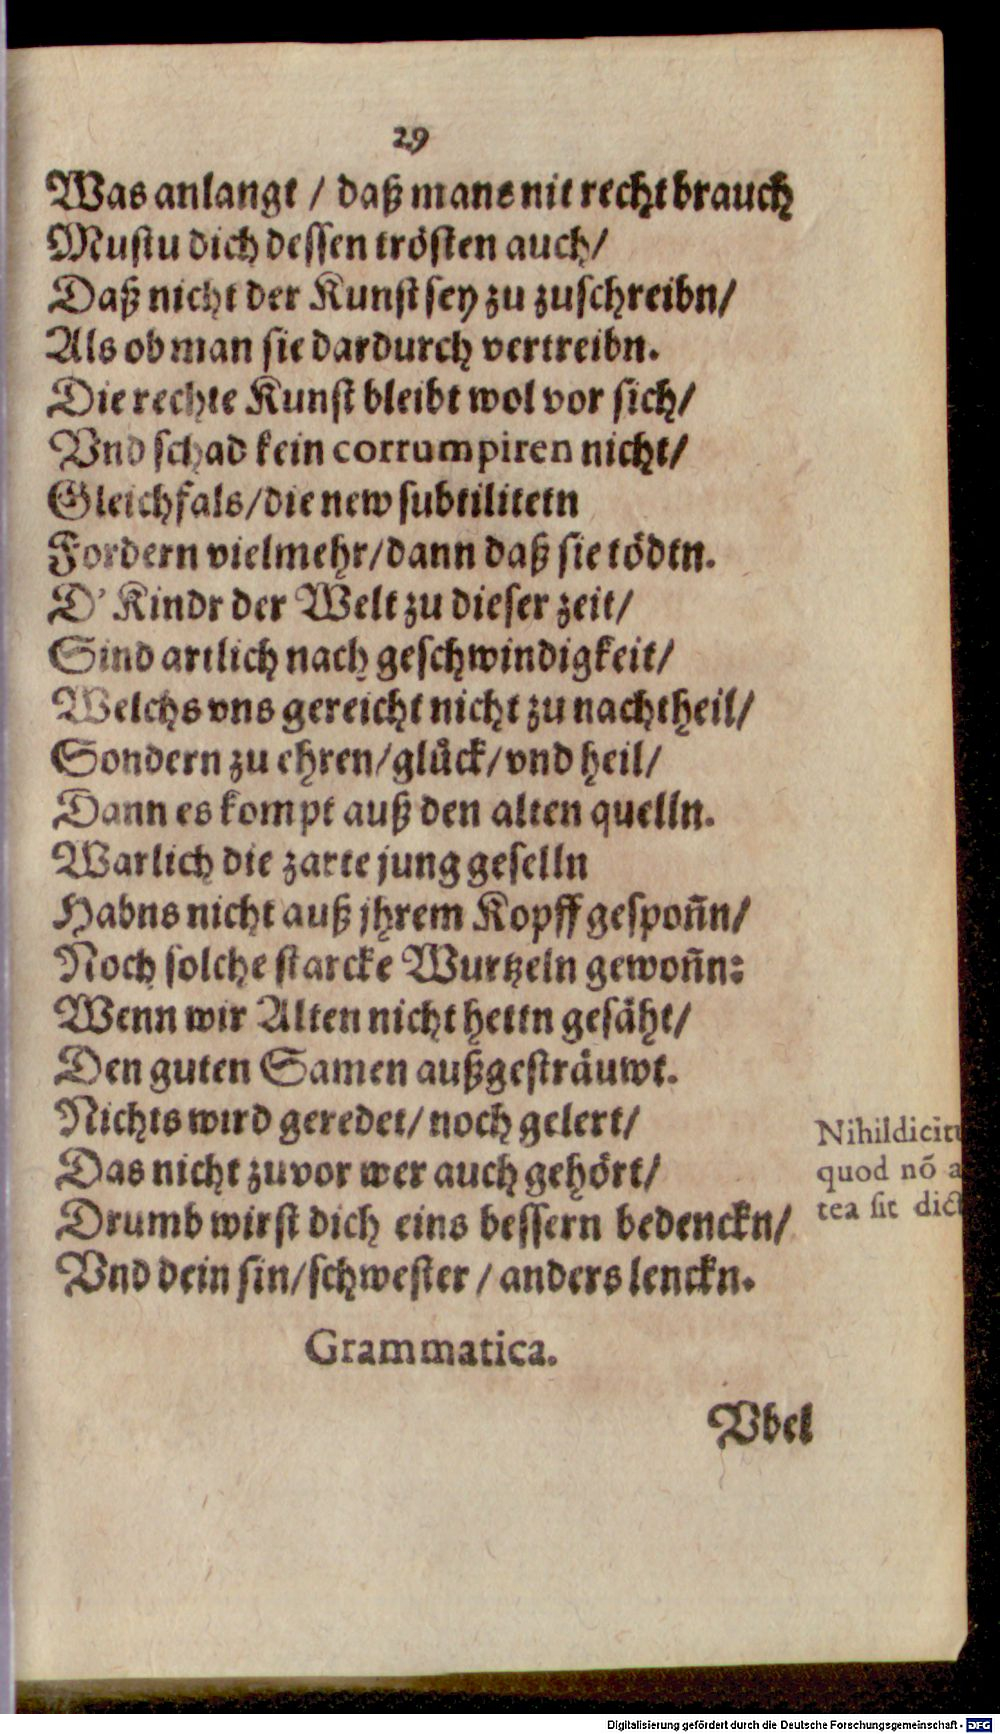 29
Was anlangt / daß mans nit recht brauch
Mustu dich dessen trösten auch/
Daß nicht der Kunst sey zu zuschreibn/
Als ob man sie dardurch vertreibn.
Die rechte Kunst bleibt wol vor sich/
Vnd schad kein corrumpiren nicht/
Gleichfals/die new subtilitetn
Fordern vielmehr/dann daß sie tödtn.
D' Kindr der Welt zu dieser zeit/
Sind artlich nach geschwindigkeit/
Welchs vns gereicht nicht zu nachtheil/
Sondern zu ehren/glück/vnd heil/
Dann es kompt auß den alten quelln.
Warlich die zarte jung geselln
Habns nicht auß jhrem Kopff gespon̄n/
Noch solche starcke Wurtzeln gewon̄n:
Wenn wir Alten nicht hettn gesäht/
Den guten Samen außgesträuwt.
Nichts wird geredet/noch gelert/
Das nicht zuvor wer auch gehört/
Drumb wirst dich eins bessern bedenckn/
Vnd dein sin/schwester / anders lenckn.
Nihil dicitu
quod nō a
tea sit dict
Grammatica.
Vbel
Digitalisierung gefördert durch die Deutsche Forschungsgemeinschaft - DFG